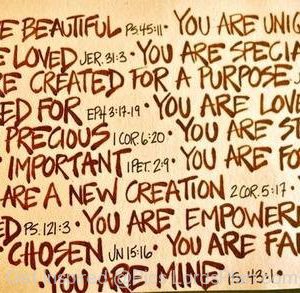 E BEAUTIFUL PS. 45:11 • YOU ARE UNIQ
E LOVED JER. 31:3 • YOU ARE SPECIA
RE CREATED FOR A PURPOSE
ED FOR EPH 3:17-19 • YOU ARE LOV
PRECIOUS 1 COR. 6:20 • YOU ARE ST
IMPORTANT 1 PET. 2:9 • YOU ARE FO
ARE A NEW CREATION 2 COR. 5:17 •
ED PS. 121:3 • YOU ARE EMPOWER
CHOSEN JN 15:16 • YOU ARE FA
MINE IS. 43:1